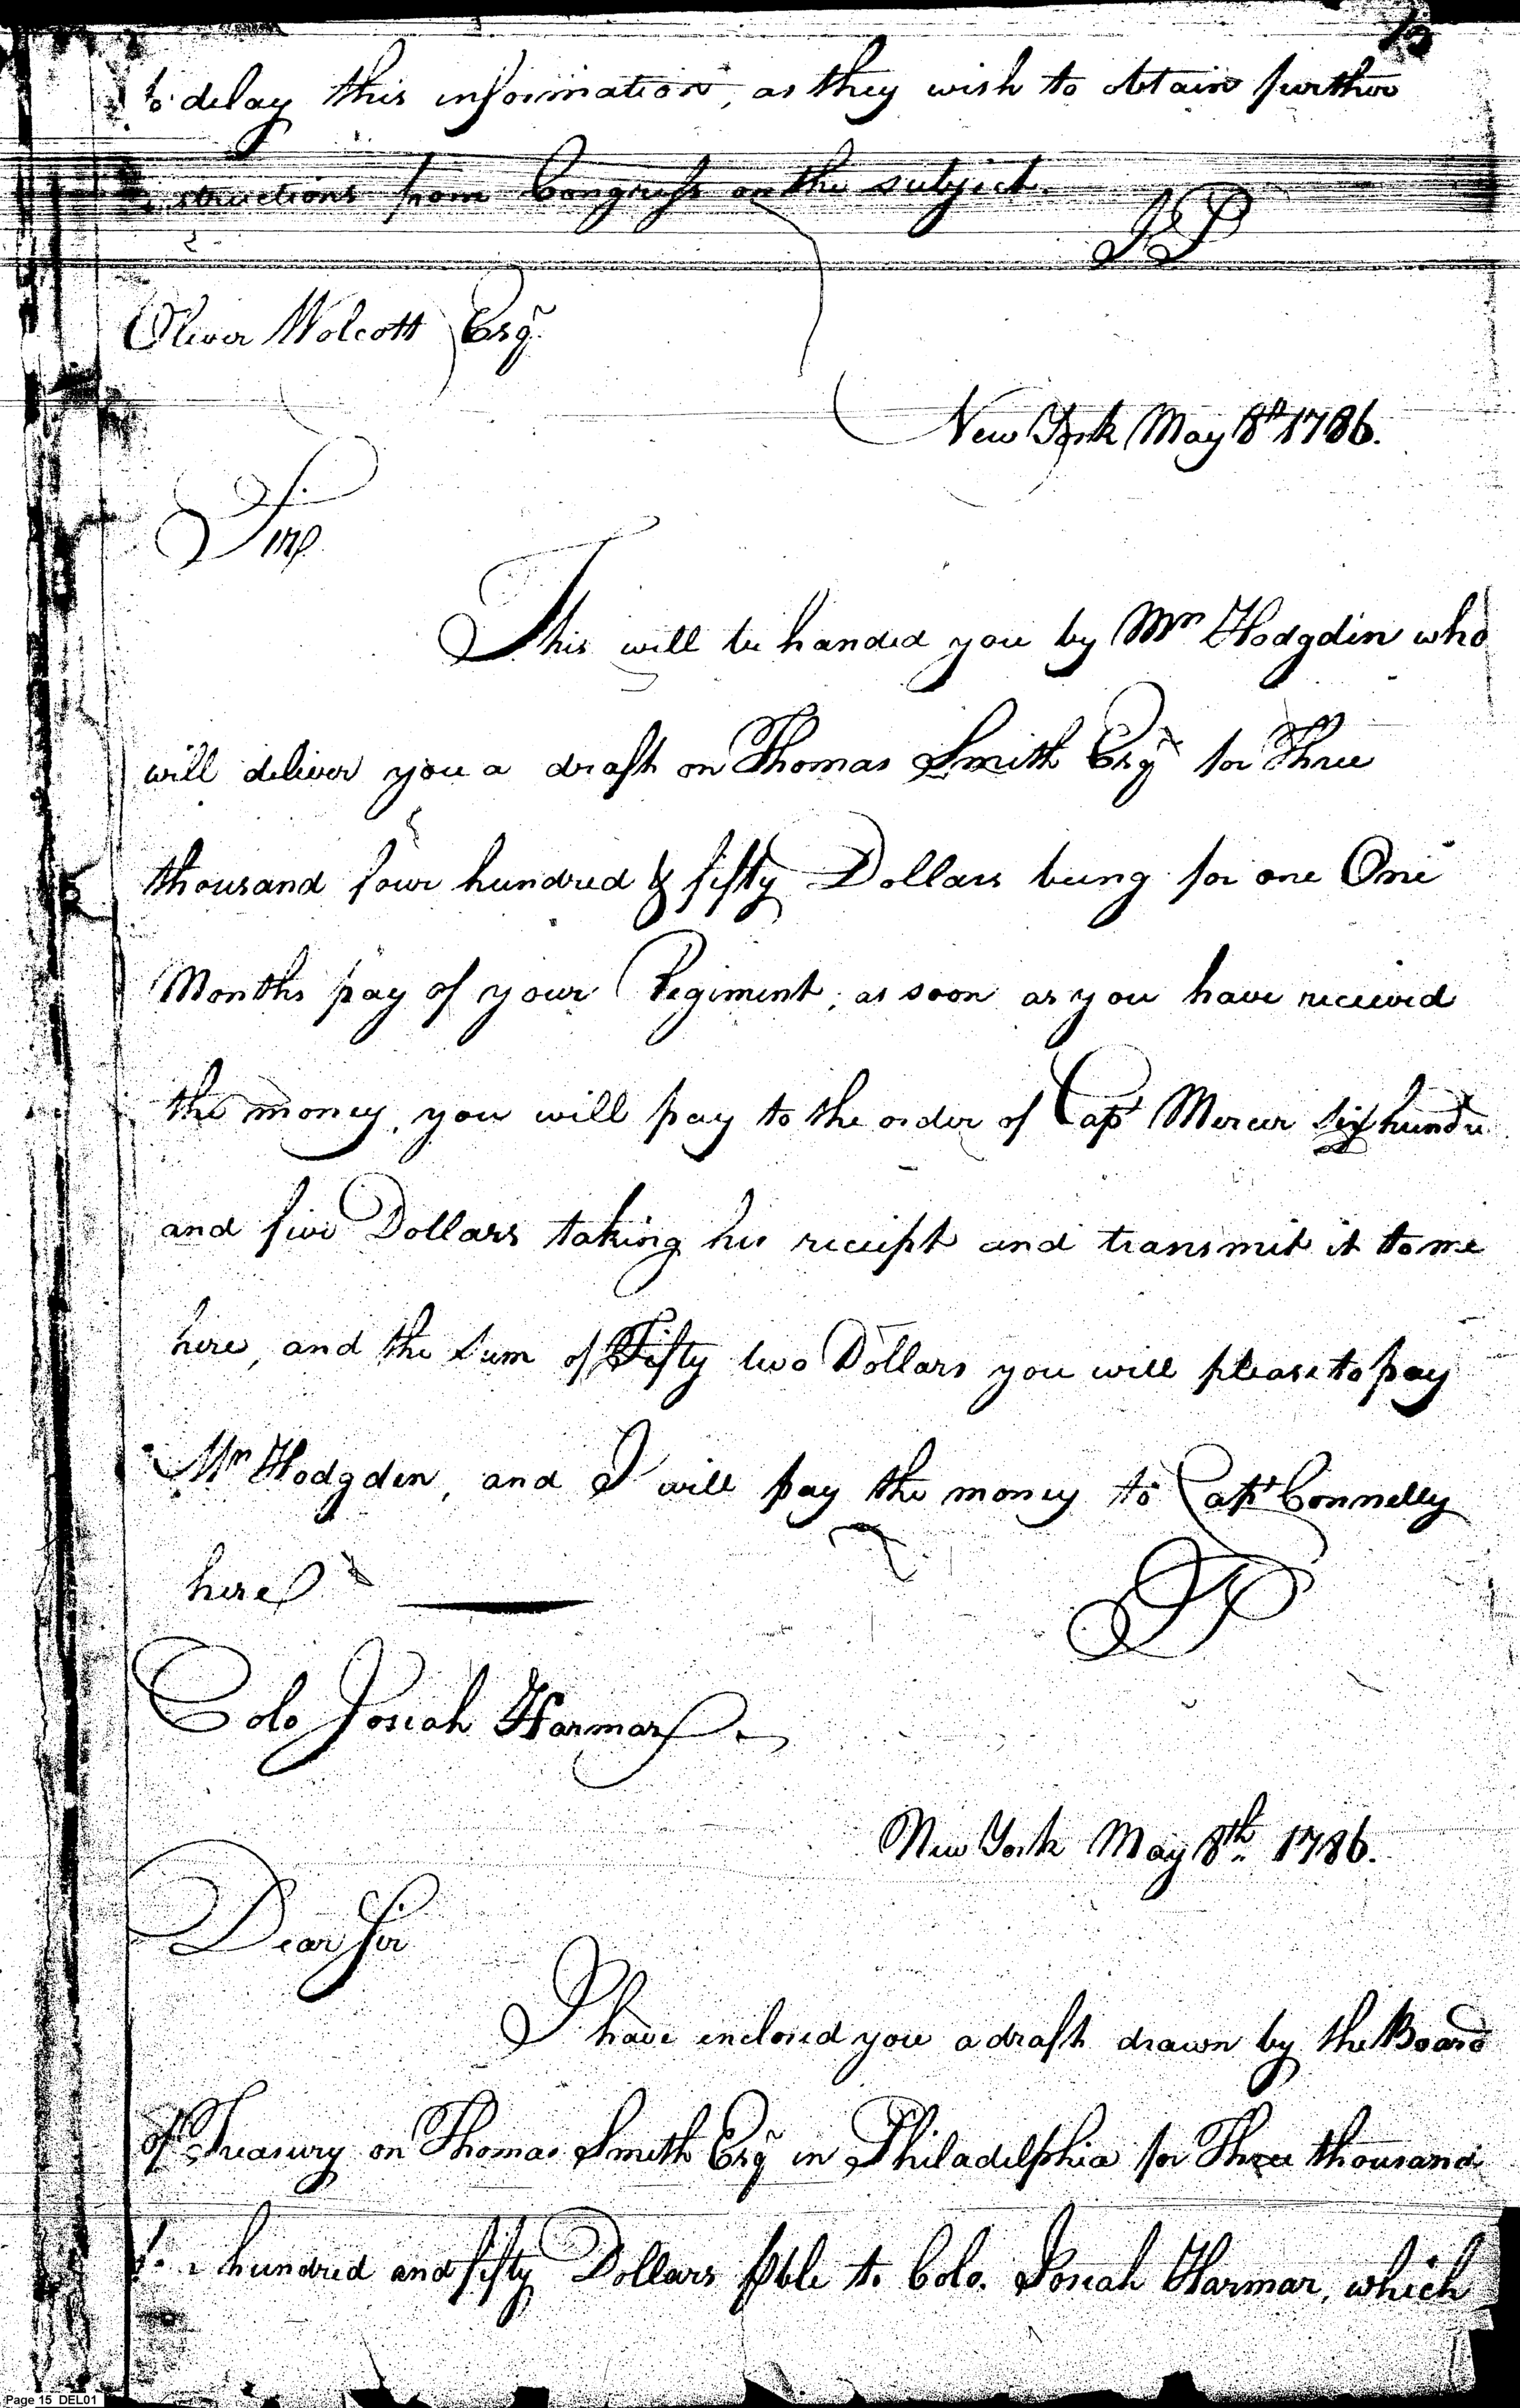 15
to delay this information, as they wish to obtain further
structions from Congress on the subject.
JP
Oliver Wolcott Esqr
New York May 8th 1786.
Sir
This will be handed you by Mr Hodgdin who
will deliver you a draft on Thomas Smith Esqr for Three
thousand four hundred & fifty Dollars being for one One
Months pay of your Regiment, as soon as you have received
the money, you will pay to the order of Capt Mercer six hundre
and five Dollars taking his receipt and transmit it to me
here, and the sum of Fifty two Dollars you will please to pay
Mr Hodgden, and I will pay the money to Capt Connelly
here
JP
Colo Josiah Harmar
New York May 8th 1786.
Dear Sir
I have inclosed you a draft drawn by the Board
of Treasury on Thomas Smith Esqr in Philadelphia for Three thousand
hundred and fifty Dollars pble to Colo. Josiah Harmar, which
Page 15 DEL01